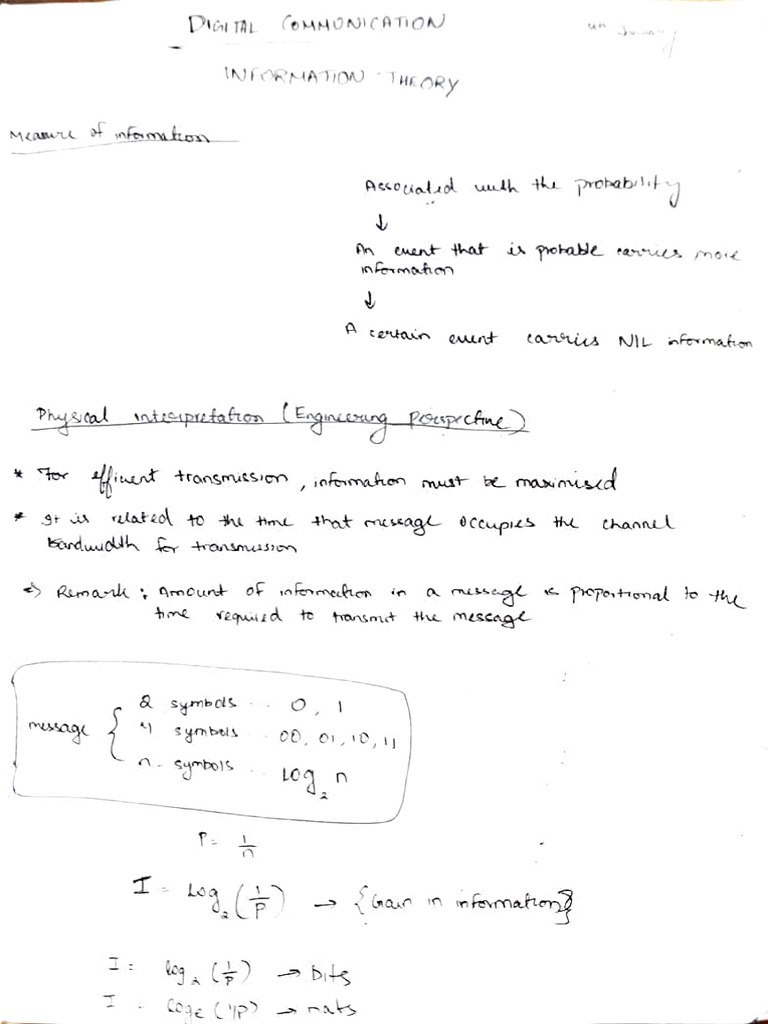 DIGITAL COMMUNICATION
4th January
INFORMATION THEORY
Measure of information
Associated with the probability
↓
An event that is probable carries more
information
↓
A certain event carries NIL information
Physical interpretation (Engineering Perspective)
* For efficient transmission, information must be maximised
* It is related to the time that message occupies the channel
bandwidth for transmission
=> Remark: Amount of information in a message is proportional to the
time required to transmit the message
message { 2 symbols ... 0, 1
4 symbols ... 00, 01, 10, 11
n- symbols ... log₂ n
P = 1/n
I = log₂ (1/P) → {Gain in information}
I = log₂ (1/P) → bits
I = loge (1/P) → nats